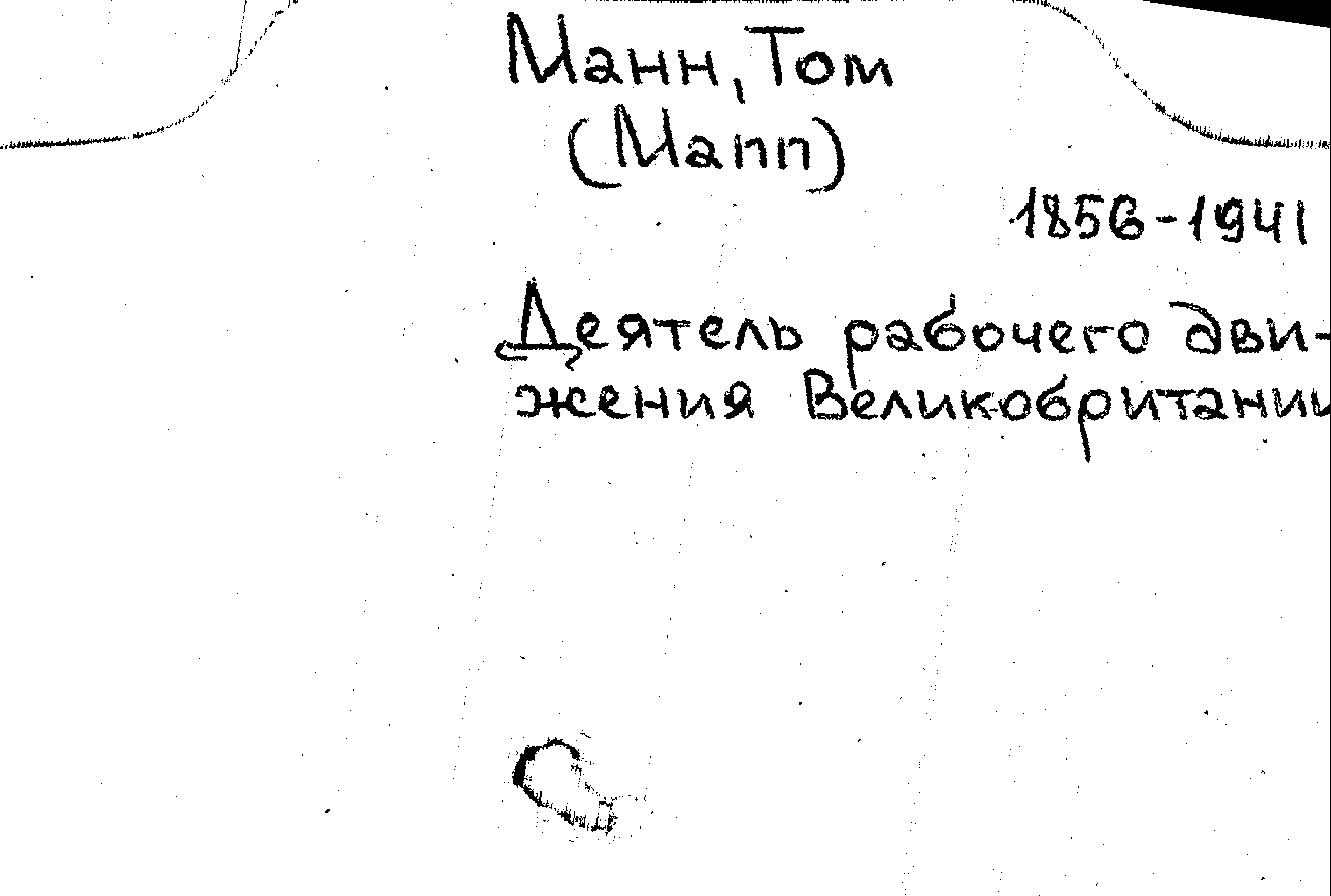 Манн, Том
(Mann)
1856-1941
Деятель рабочего дви-
жения Великобритании